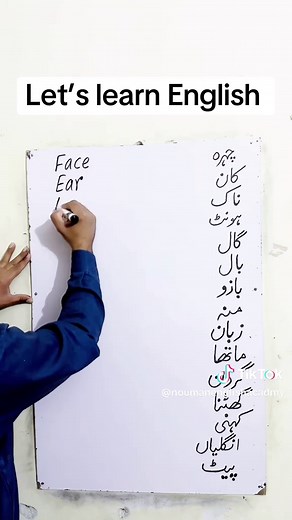 Let's learn English
Face چہرہ
Ear کان
ناک
ہونٹ
گال
بال
بازو
منہ
زبان
ماتھا
گردن
گھٹنا
کہنی
انگلیاں
پیٹ